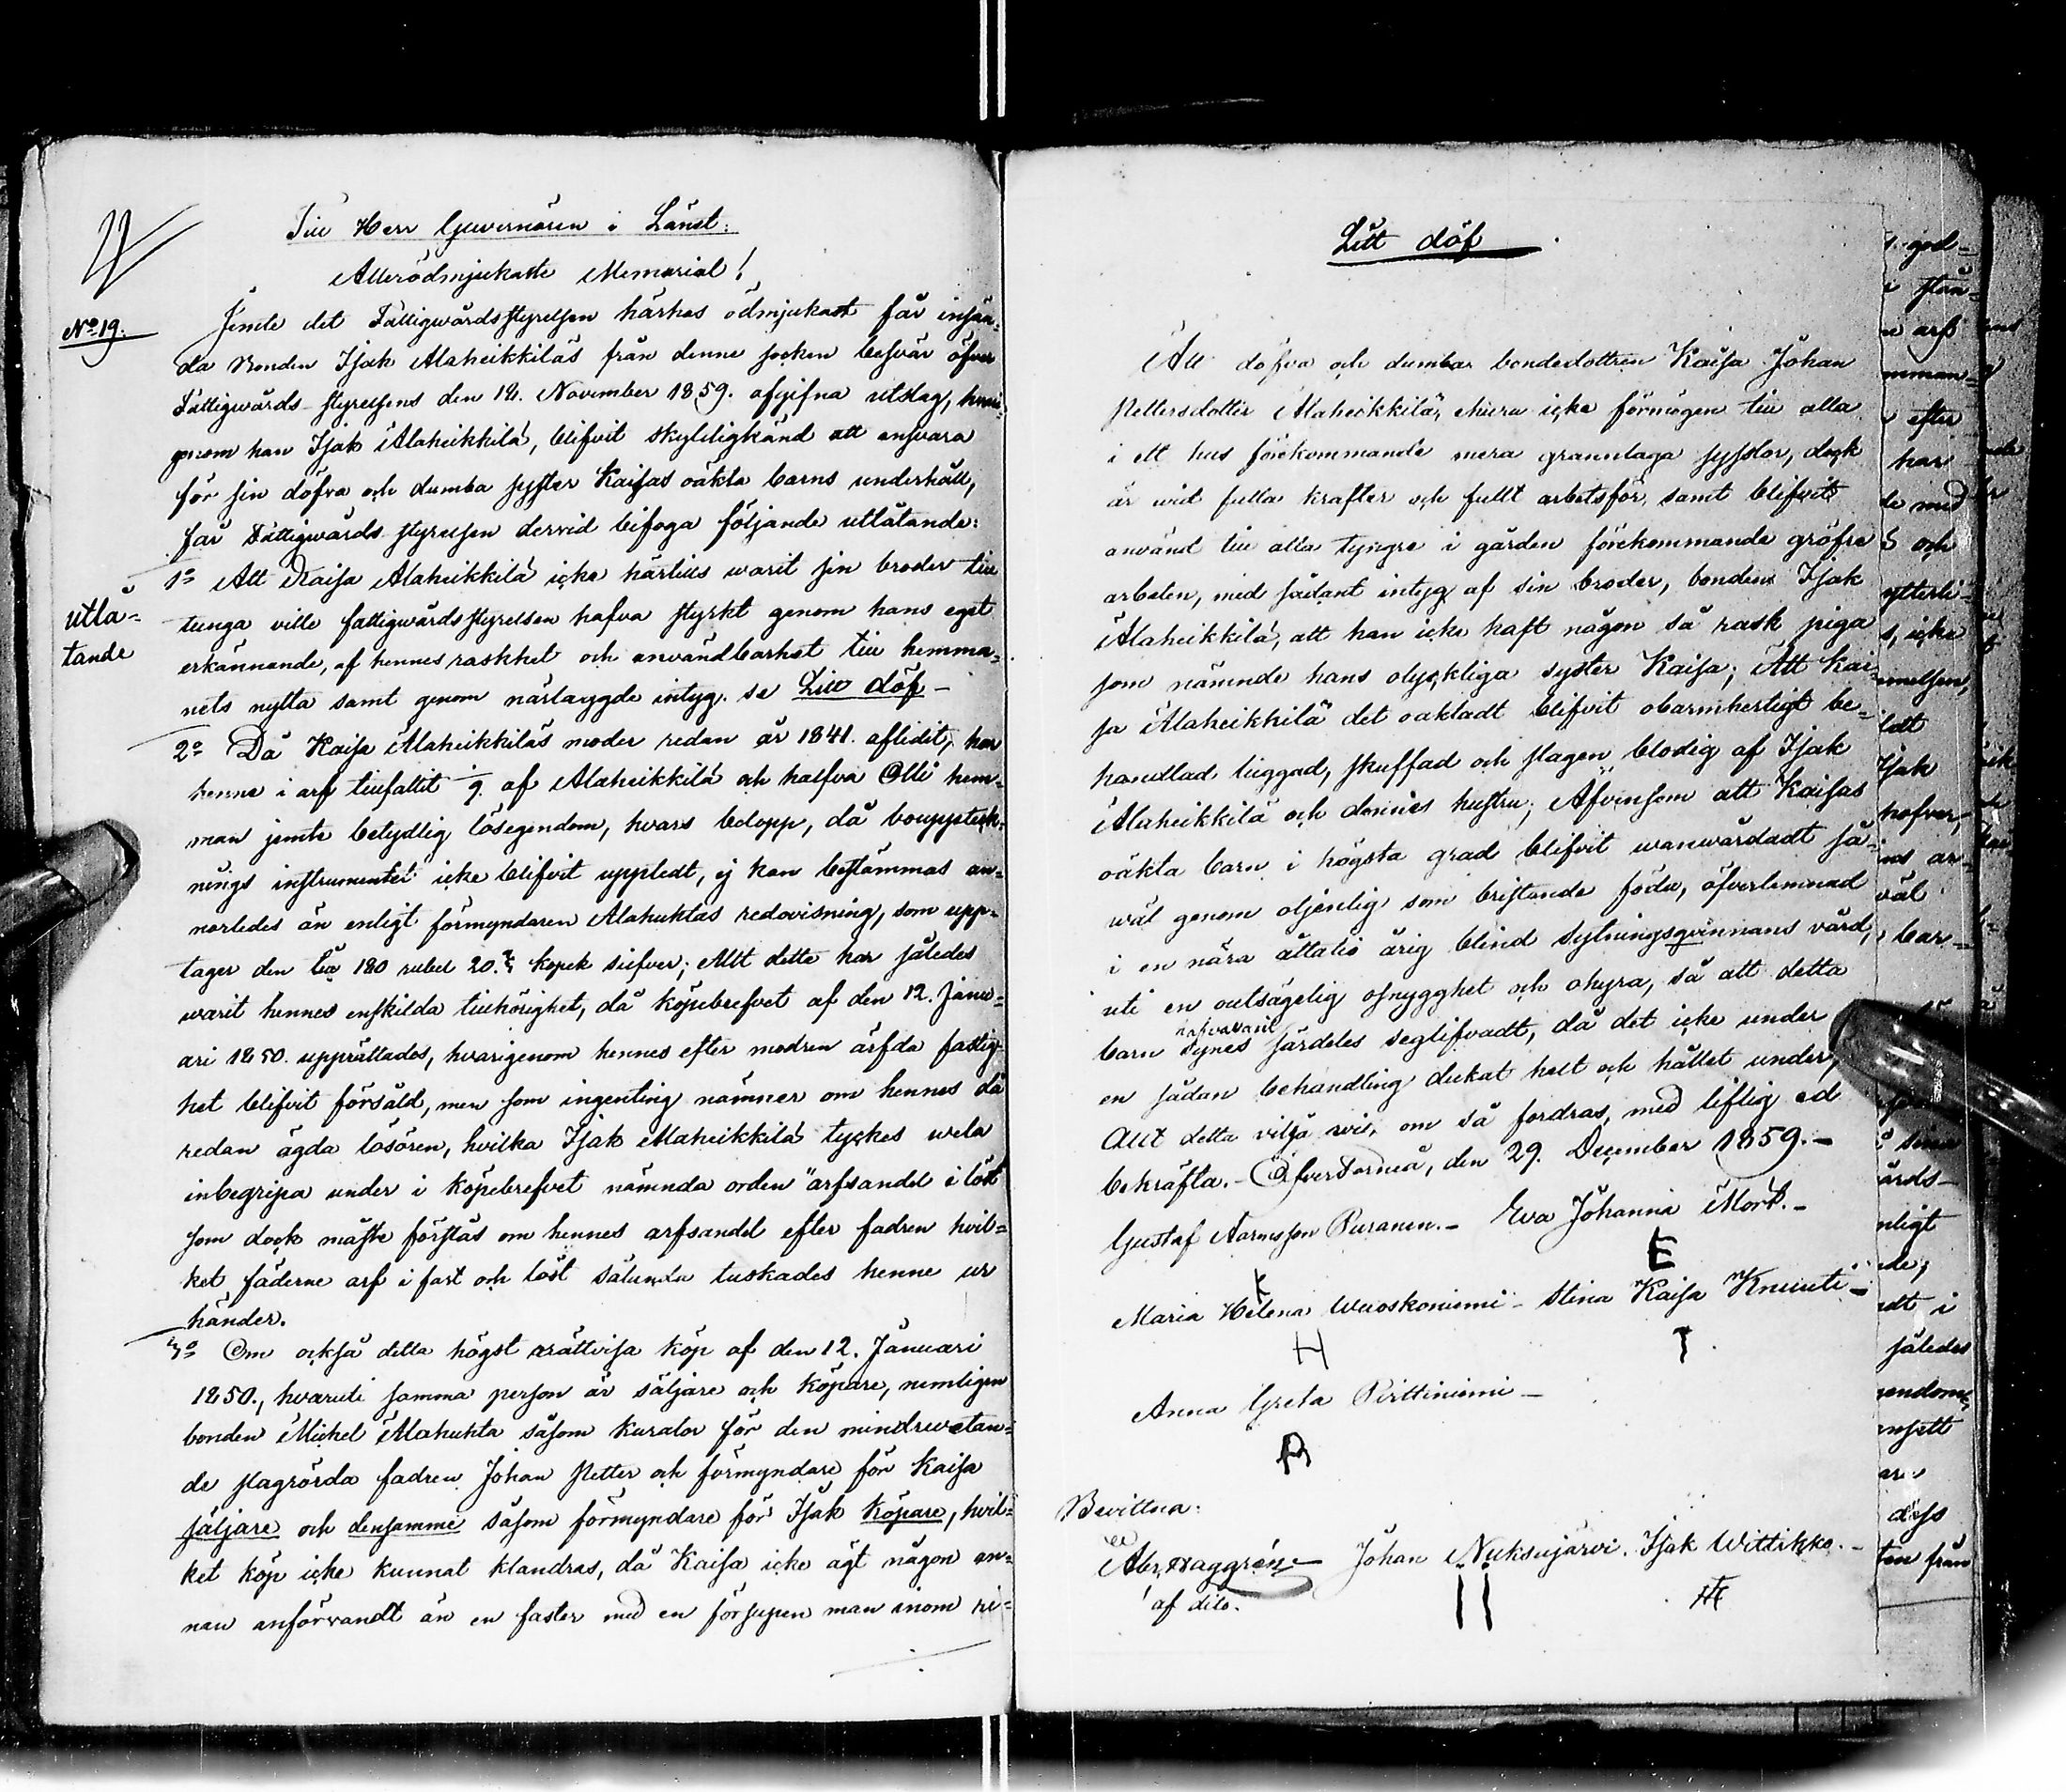 Till Herr Guvernören i Länet.
Allerödmjukaste Memorial!
No 19.
Jemte det Fattigwårdsstyrelsen härhos ödmjukast får insän-
da Bonden Isak Alaheikkiläs från denne socken besvär öfver
Fattigwårds-styrelsens den 12. November 1859. afgifna utslag, hvari-
genom han Isak Alaheikkilä, blifvit skyldigkänd att ansvara
för sin döfva och dumba syster Kaisas oäkta barns underhåll,
får Fattigwårds styrelsen dervid bifoga följande utlåtande:
utlå-
tande
1o Att Kaisa Alaheikkilä icke härtills warit sin broder till
tunga ville fattigwårdsstyrelsen hafva styrkt genom hans eget
erkännande, af hennes raskhet och användbarhet till hemma-
nets nytta samt genom närlaggde intyg. se Litt döf -
2o Då Kaisa Alaheikkiläs moder redan år 1841. aflidit, har
henne i arf tillfallit af Alaheikkilä och halfva Olli hem-
man jemte betydlig lösegendom, hvars belopp, då bouppteck-
nings instrumentet icke blifvit uppledt, ej kan bestämmas an-
norledes än enligt förmyndaren Alahuhtas redovisning, som upp-
tager den till 180 rubel 20. kopek silfver; Allt detta har således
warit hennes enskilda tillhörighet, då köpebrefvet af den 12. Janu-
ari 1850. upprättades, hvarigenom hennes efter modren ärfda fastig-
het blifvit försåld, men som ingenting nämner om hennes då
redan ägda lösören, hvilka Isak Alaheikkilä tyckes wela
inbegripa under i köpebrefvet nämnda orden "arfsandel i löst
som dock måste förstås om hennes arfsandel efter fadren hvil-
ket fäderne arf i fast och löst sålunda tuskades henne ur
händer.
3o Om också detta högst orättvisa köp af den 12. Januari
1850., hvaruti samma person är säljare och köpare, nemligen
bonden Mickel Alahuhta såsom kurator för den mindrevetan-
de slagrörda fadren Johan Petter och förmyndare för Kaisa
säljare och densamme såsom förmyndare för Isak köpare, hvil-
ket köp icke kunnat klandras, då Kaisa icke ägt någon an-
nan anförvandt än en faster med en försupen man inom ri-
Litt döf
Att döfva och dumba bondedottren Kaisa Johan
Pettersdotter Alaheikkilä, ehuru icke förmögen till alla
i ett hus förekommande mera grannlaga sysslor, dock
är wid fulla krafter och fullt arbetsför, samt blifvit
använd till alla tyngre i gården förekommande gröfre
arbeten, med sådant intyg af sin broder, bonden Isak
Alaheikkilä, att han icke haft någon så rask piga
som nämnde hans olyckliga syster Kaisa; Att Kai-
sa Alaheikkilä det oaktadt blifvit obarmhertigt be-
handlad luggad, skuffad och slagen blodig af Isak
Alaheikkilä och dennes hustru; Äfvensom att Kaisas
oäkta barn i högsta grad blifvit wanwårdadt så-
wäl genom otjenlig som bristande föda, öfverlemnad
i en nära åttatio årig blind sytningsqvinnans vård,
uti en outsägelig osnygghet och ohyra, så att detta
barn synes särdeles seglifvadt, då det icke under
en sådan behandling dukat helt och hållet under,
Allt detta vilja wi, om så fordras, med liflig ed
bekräfta. - ÖfverTorneå, den 29. December 1859. -
Gustaf Aronsson Puranen. - Eva Johanna Mört. -
E
Maria Helena Wuoskoniemi - Stina Kaisa Knuuti -
H T
Anna Greta Pirttiniemi -
Bevittna:
Abr. Haggrén Johan Nuksujärvi. Isak Wittikko. -
af dito.